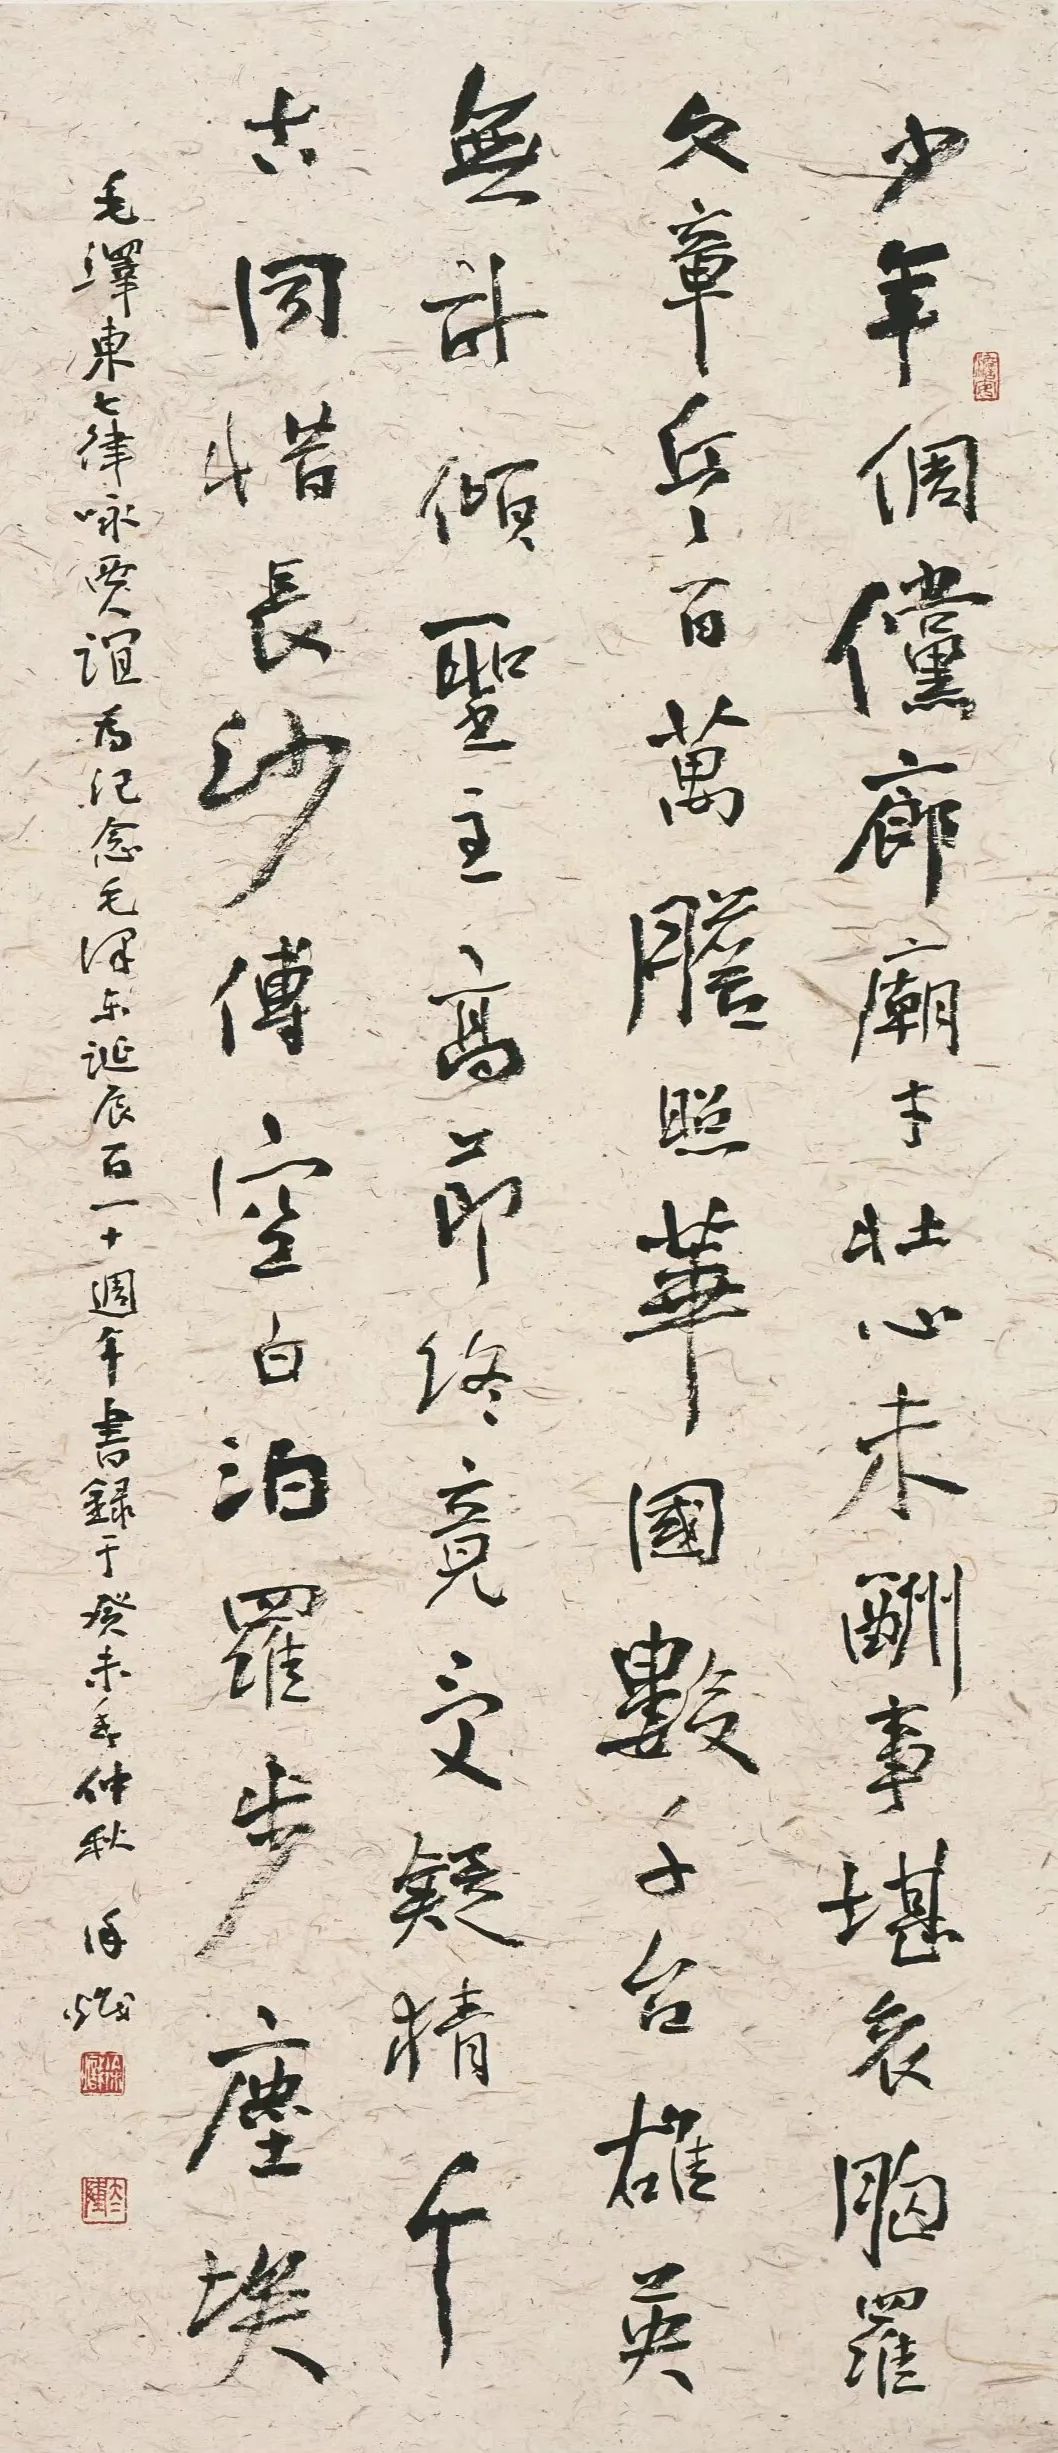 少年倜儻廊廟才壯心未酬事堪哀胸羅
文章兵百萬膽照華國數千台雄英
無計傾聖主高節終竟受疑猜千
古同惜長沙傅空白汨羅步塵埃
毛澤東七律咏賈誼為紀念毛澤东誕辰百一十週年書録于癸未年仲秋 徐